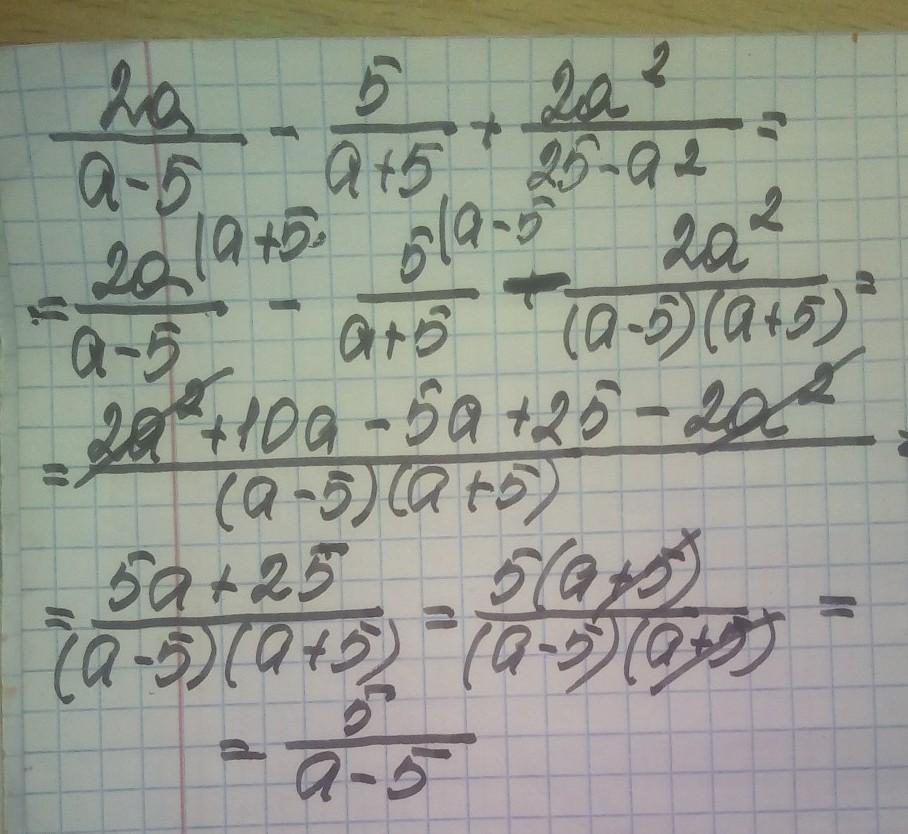 2a/(a-5) - 5/(a+5) + 2a²/(25-a2) =
= 2a (a+5 /(a-5) - 5 (a-5 /(a+5) - 2a²/((a-5)(a+5)) =
= (2a² + 10a - 5a + 25 - 2a²)/((a-5)(a+5)) =
= (5a + 25)/((a-5)(a+5)) = 5(a+5)/((a-5)(a+5)) =
= 5/(a-5)